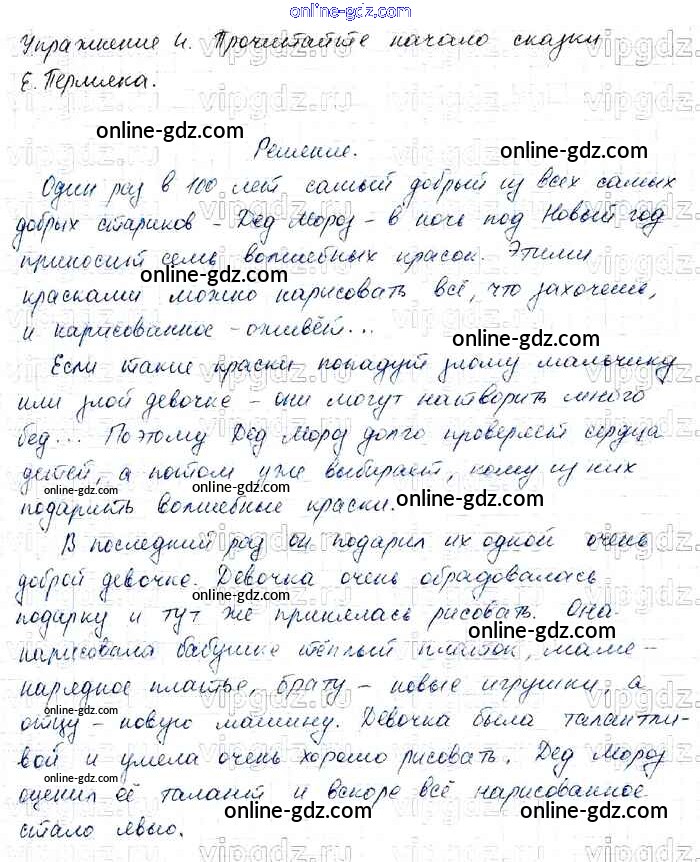 online-gdz.com
Упражнение 4. Прочитайте начало сказки
Е. Пермяка.
online-gdz.com
Решение.
online-gdz.com
Один раз в 100 лет самый добрый из всех самых
добрых стариков - Дед Мороз - в ночь под Новый год
приносит семь волшебных красок. Этими
online-gdz.com
красками можно нарисовать всё, что захочешь,
и нарисованное - оживёт...
online-gdz.com
Если такие краски попадут злому мальчику
или злой девочке - они могут натворить много
бед... Поэтому Дед Мороз долго проверяет сердца
детей, а потом уже выбирает, кому из них
online-gdz.com
online-gdz.com
подарить волшебные краски.
В последний раз он подарил их одной очень
доброй девочке. Девочка очень обрадовалась
online-gdz.com
подарку и тут же принялась рисовать. Она
online-gdz.com
нарисовала бабушке тёплый платок, маме -
нарядное платье, брату - новые игрушки, а
online-gdz.com
отцу - новую машину. Девочка была талантли-
вой и умела очень хорошо рисовать. Дед Мороз
online-gdz.com
оценил её талант и вскоре всё нарисованное
online-gdz.com
online-gdz.com
стало явью.